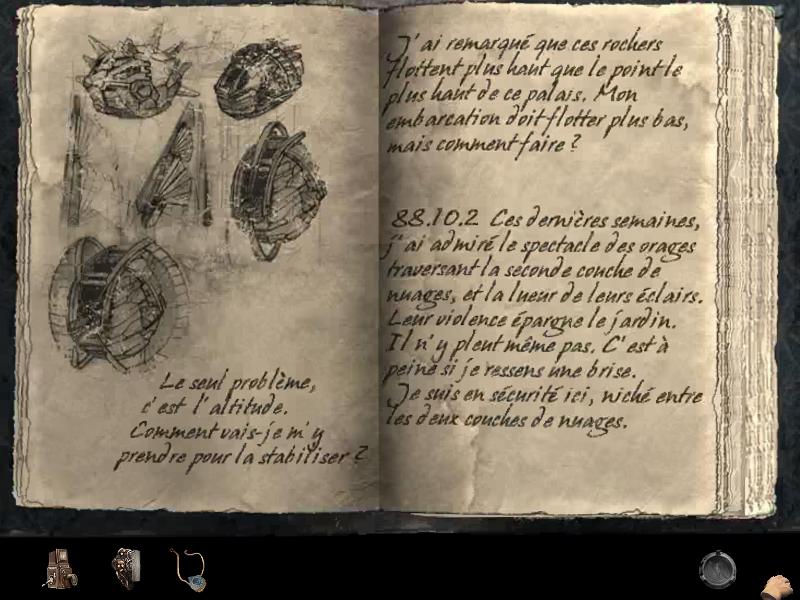 Le seul problème,
c'est l'altitude.
Comment vais-je m'y
prendre pour la stabiliser ?
J'ai remarqué que ces rochers
flottent plus haut que le point le
plus haut de ce palais. Mon
embarcation doit flotter plus bas,
mais comment faire ?
88.10.2 Ces dernières semaines,
j'ai admiré le spectacle des orages
traversant la seconde couche de
nuages, et la lueur de leurs éclairs.
Leur violence épargne le jardin.
Il n'y pleut même pas. C'est à
peine si je ressens une brise.
Je suis en sécurité ici, niché entre
les deux couches de nuages.